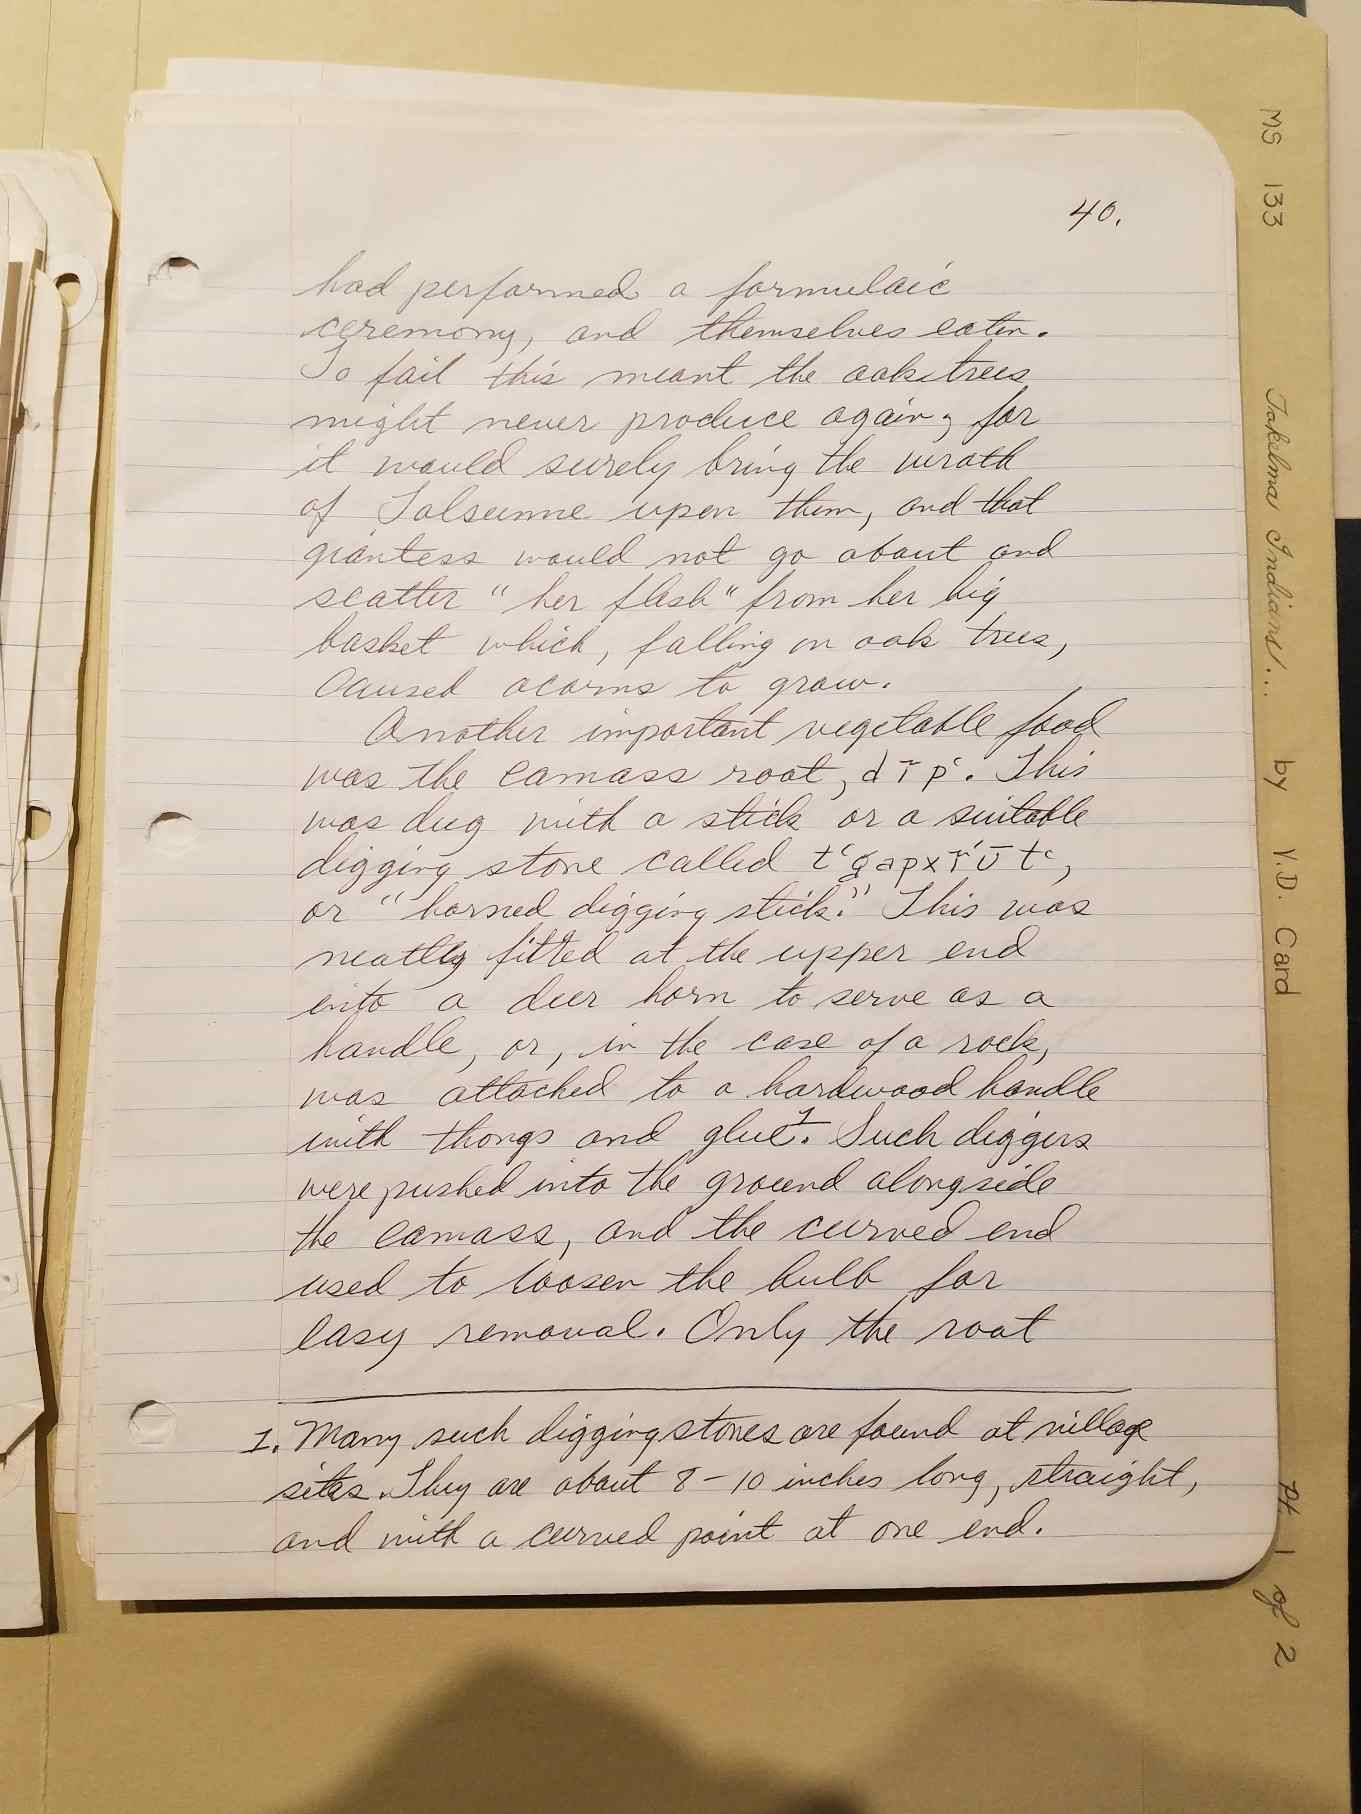 40.
had performed a formulaic
ceremony, and themselves eaten.
To fail this meant the oak trees
might never produce again, for
it would surely bring the wrath
of Talsunne upon them, and that
giantess would not go about and
scatter "her flesh" from her big
basket which, falling on oak trees,
caused acorns to grow.
Another important vegetable food
was the camass root, dīp‘. This
was dug with a stick or a suitable
digging stone called
or "horned digging stick." This was
neatly fitted at the upper end
into a deer horn to serve as a
handle, or, in the case of a rock,
was attached to a hardwood handle
with thongs and glue¹. Such diggers
were pushed into the ground alongside
the camass, and the curved end
used to loosen the bulb for
easy removal. Only the root
1. Many such digging stones are found at village
sites. They are about 8-10 inches long, straight,
and with a curved point at one end.
MS 133 Takelma Indians... by Y.D. Card Pt. 1 of 2